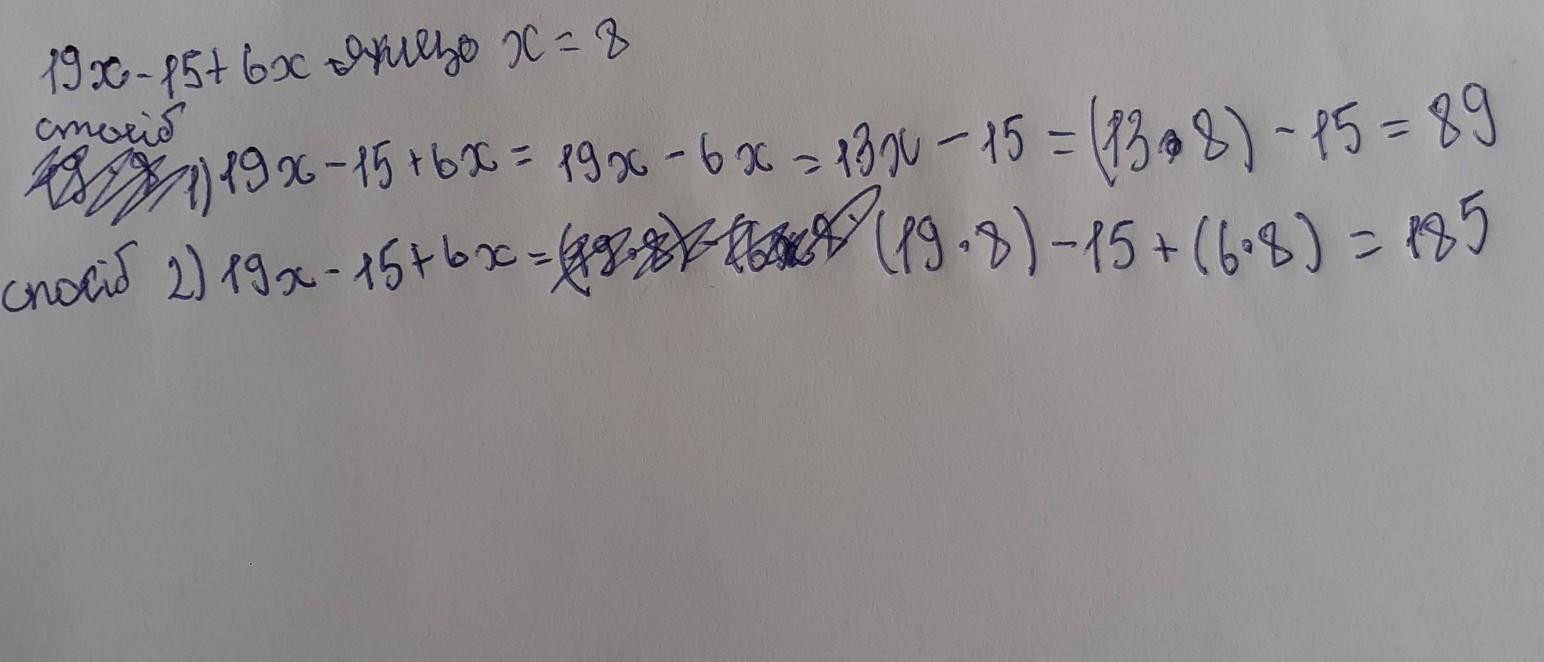 19x - 15 + 6x якщо x = 8
спосіб
1) 19x - 15 + 6x = 19x - 6x = 13x - 15 = (13 • 8) - 15 = 89
спосіб 2) 19x - 15 + 6x = (19 · 8) - 15 + (6 · 8) = 185